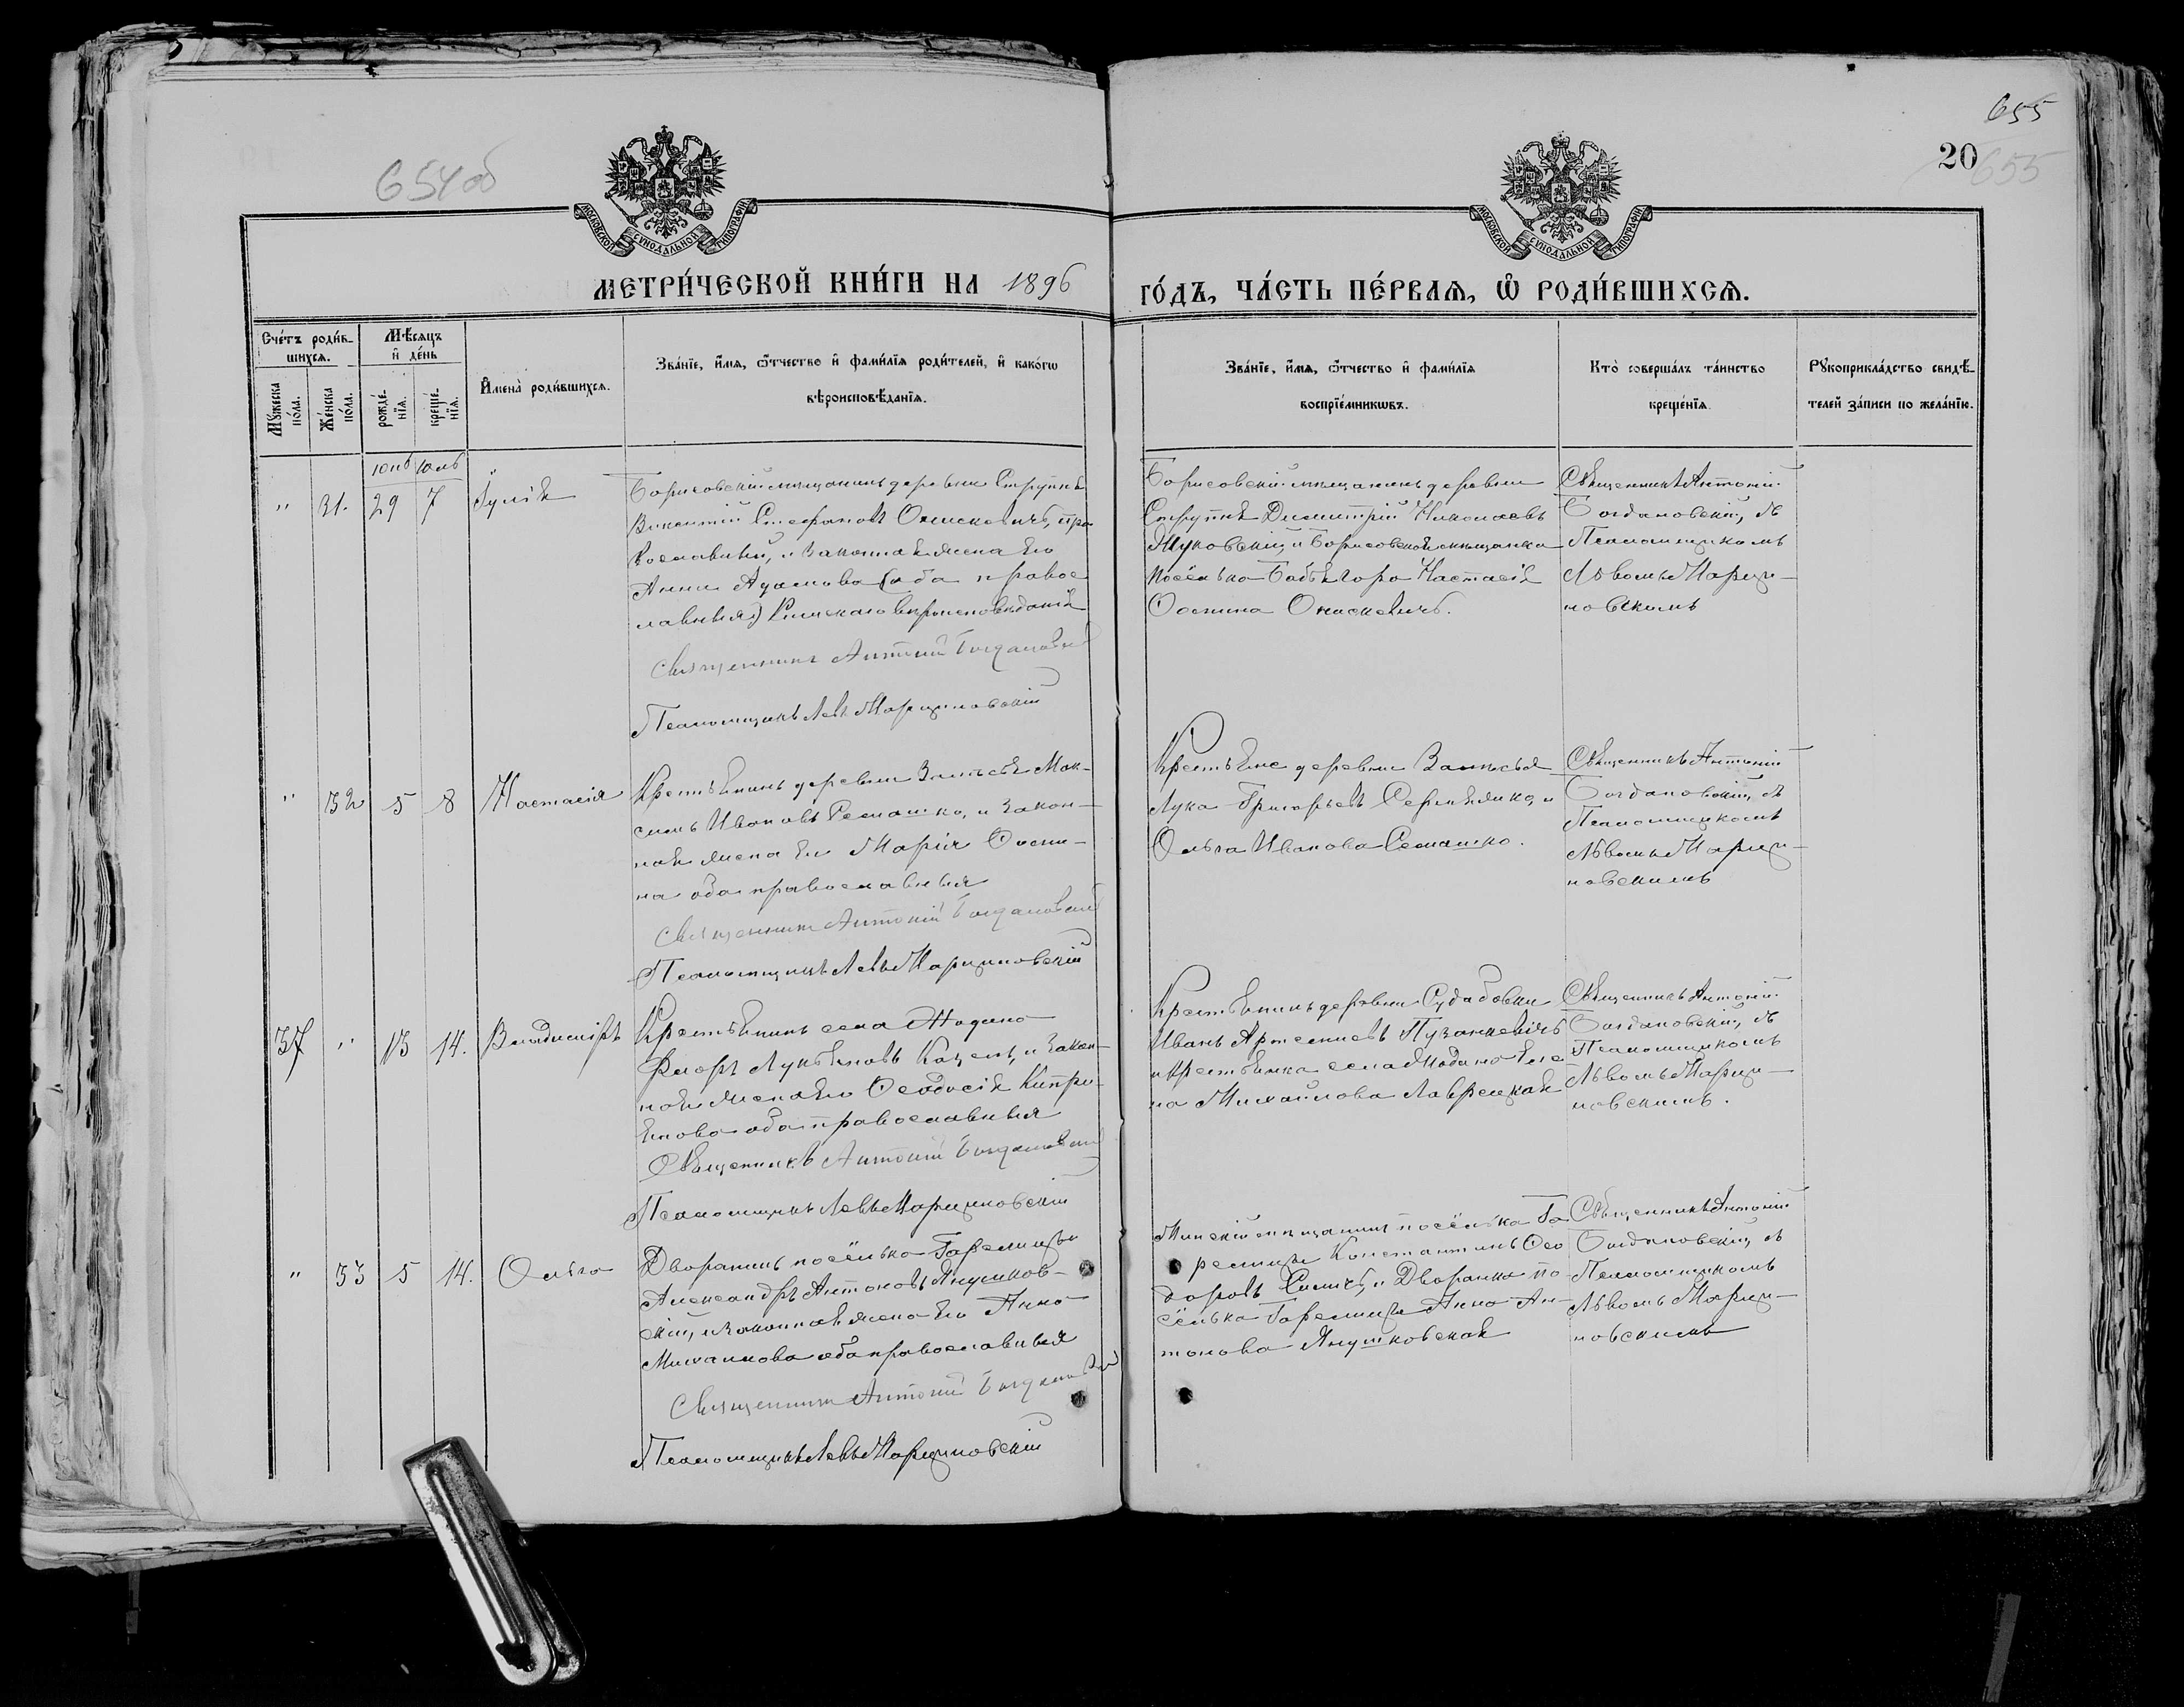 654 об
655
20
655
МОСКОВСКОЙ СѴНОДАЛЬНОЙ ТИПОГРАФІИ
МОСКОВСКОЙ СѴНОДАЛЬНОЙ ТИПОГРАФІИ
МЕТРИ́ЧЕСКОЙ КНИ́ГИ НА 1896
ГО́ДЪ, ЧА́СТЬ ПЕ́РВАЯ, Ѡ РОДИ́ВШИХСЯ.
Сче́тъ роди́в-
шихся.
Му́жеска по́ла.
Же́нска по́ла.
Мѣ́сяцъ
и де́нь
рожде́-
нія.
креще́-
нія.
Имена̀ роди́вшихся.
Зва́ніе, и́мя, ѻ́тчество и фами́лія роди́телей, и како́гѡ
вѣроисповѣ́данія.
Зва́ніе, и́мя, ѻ́тчество и фами́лія
воспріе́мникѡвъ.
Кто̀ соверша́лъ та́инство
креще́нія.
Рукоприкла́дство свидѣ́-
телей за́писи по жела́нію.
" 31. 29 7 Іулія
Борисовскій мѣщанинъ деревни Струпня
Викентій Стефановъ Онискевичъ, пра-
вославный, и законная жена его
Анна Адамова (оба правос
лавныя) Римскаго вѣроисповѣданія
Священникъ Антоній Богдановскій
Псаломщикъ Левъ Марциновскій
Борисовскій мѣщанинъ деревни
Струпня Димитрій Николаевъ
Жуковскій, и Борисовская мѣщанка
посёлка Бабья гора Настасія
Осипова Онискевичъ.
Священникъ Антоній
Богдановскій, съ
Псаломщикомъ
Львомъ Марци-
новскимъ
" 32 5 8 Настасія
Крестьянинъ деревни Залѣсья Мак-
симъ Ивановъ Семашко, и закон-
ная жена его Марія Осипо-
ва оба православныя
Священникъ Антоній Богдановскій
Псаломщикъ Левъ Марциновскій
Крестьяне деревни Залѣсья
Лука Григорьевъ Сермяжко, и
Ольга Иванова Семашко.
Священникъ Антоній
Богдановскій, съ
Псаломщикомъ
Львомъ Марци-
новскимъ
37 " 13 14. Владиміръ
Крестьянинъ села Жодино
Флоръ Лукьяновъ Кацемъ, и закон-
ная жена его Ѳеодосія Кипри-
янова оба православныя
Священникъ Антоній Богдановскій
Псаломщикъ Левъ Марциновскій
Крестьянинъ деревни Судобовки
Иванъ Арсеніевъ Пузанкевичъ
и крестьянка села Жодино Еле
на Михайлова Лаврецкая
Священникъ Антоній
Богдановскій, съ
Псаломщикомъ
Львомъ Марци-
новскимъ.
" 33 5 14. Ольга
Дворянинъ посёлка Барсмицы
Александръ Антоновъ Янушков-
скій, и законная жена его Анна
Михаилова оба православныя
Священникъ Антоній Богдановскій
Псаломщикъ Левъ Марциновскій
Минскій мѣщанинъ посёлка
Константинъ Ѳео
доровъ и Дворянка по
сёлка Анна Ан-
тонова Янушковская
Священникъ Антоній
Богдановскій, съ
Псаломщикомъ
Львомъ Марци-
новскимъ